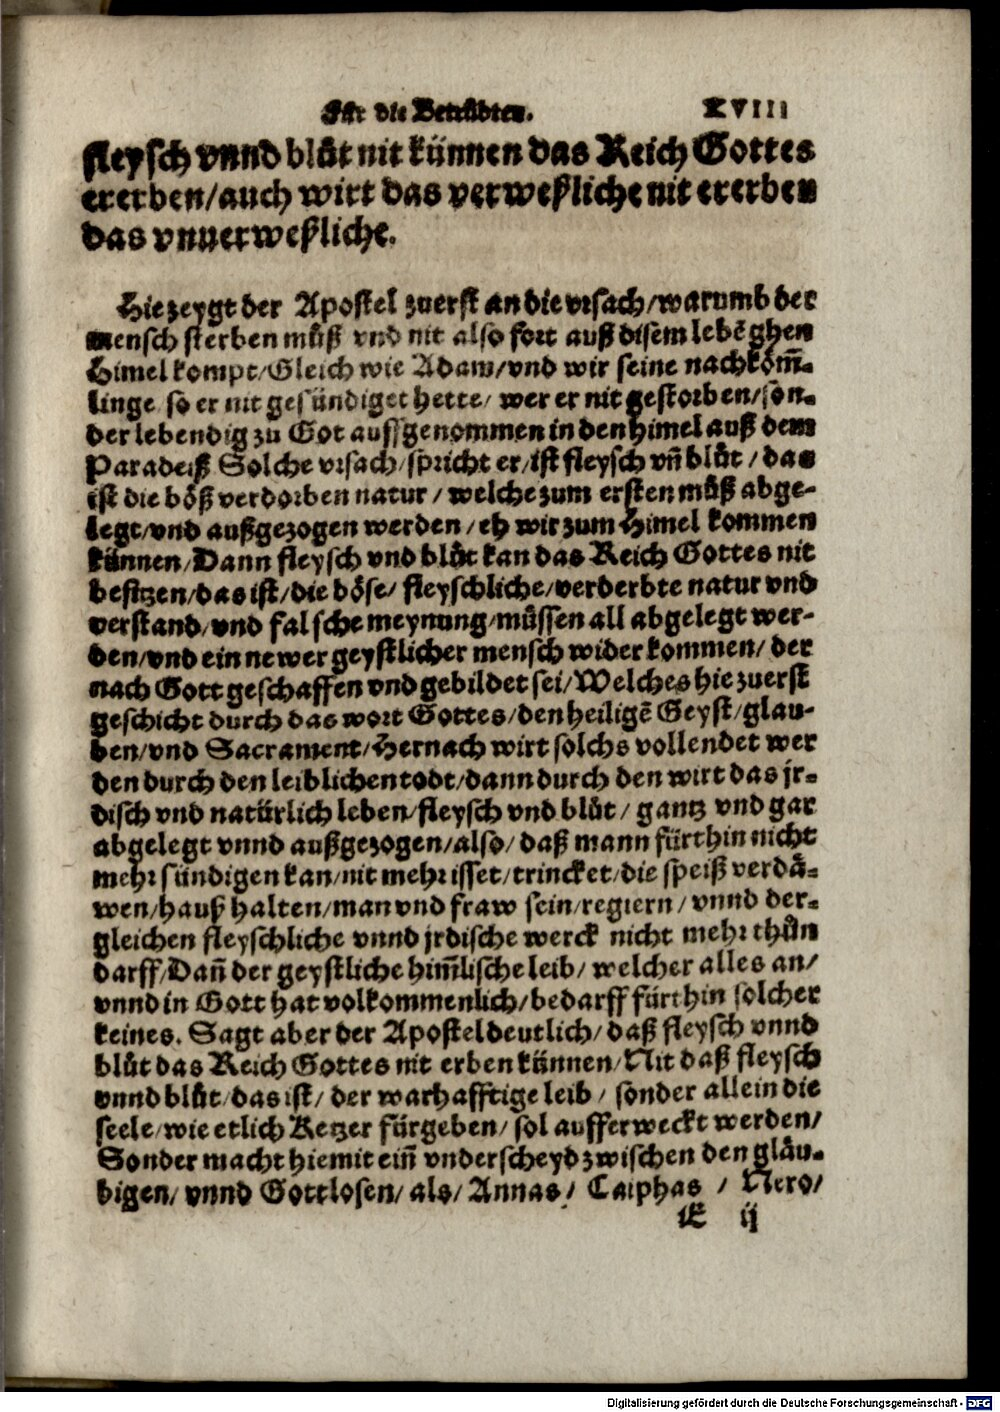 Für die Betrübten. XVIII
fleysch vnnd blůt nit künnen das Reich Gottes
ererben/auch wirt das verweßliche nit ererben
das vnuerweßliche.
Hie zeygt der Apostel zuerst an die vrsach/warumb der
mensch sterben můß vnd nit also fort auß disem lebē ghen
Himel kompt/Gleich wie Adam/vnd wir seine nachköm̄-
linge so er nit gesündiget hette/ wer er nit gestorben/son-
der lebendig zu Got auffgenommen in den Himel auß dem
Paradeiß Solche vrsach/spricht er/ist fleysch vn̄ blůt/das
ist die böß verdorben natur/welche zum ersten můß abge-
legt/vnd außgezogen werden/eh wir zum Himel kommen
künnen/Dann fleysch vnd blůt kan das Reich Gottes nit
besitzen/das ist/die böse/ fleyschliche/verderbte natur vnd
verstand/vnd falsche meynung/müssen all abgelegt wer-
den/vnd ein newer geystlicher mensch wider kommen/ der
nach Gott geschaffen vnd gebildet sei/Welches hie zuerst
geschicht durch das wort Gottes/den heiligē Geyst/glau-
ben/vnd Sacrament/Hernach wirt solchs vollendet wer
den durch den leiblichen todt/dann durch den wirt das jr-
disch vnd natürlich leben/fleysch vnd blůt/ gantz vnd gar
abgelegt vnnd außgezogen/also/daß mann fürthin nicht
mehr sündigen kan/nit mehr isset/trincket/die speiß verdä-
wen/hauß halten/man vnd fraw sein/regiern/vnnd der-
gleichen fleyschliche vnnd jrdische werck nicht mehr thůn
darff/Dan̄ der geystliche him̄lische leib/ welcher alles an/
vnnd in Gott hat volkommenlich/bedarff fürthin solcher
keines. Sagt aber der Apostel deutlich/daß fleysch vnnd
blůt das Reich Gottes nit erben künnen/Nit daß fleysch
vnnd blůt/das ist/ der warhafftige leib/ sonder allein die
seele/wie etlich Ketzer fürgeben/ sol aufferweckt werden/
Sonder macht hiemit ein̄ vnderscheyd zwischen den gläu-
bigen/ vnnd Gottlosen/ als/ Annas/ Caiphas / Nero/
E ij
Digitalisierung gefördert durch die Deutsche Forschungsgemeinschaft - DFG